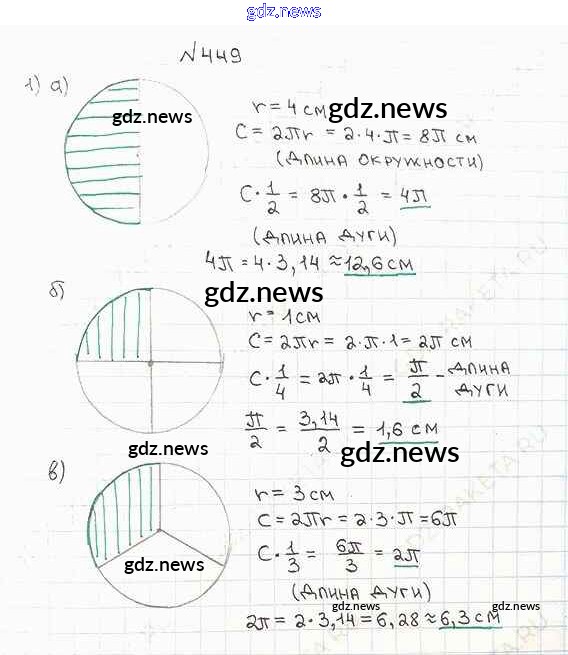 gdz.news
№449
1) а)
gdz.news
r = 4 см gdz.news
C = 2πr = 2·4·π = 8π см
(ДЛИНА ОКРУЖНОСТИ)
C · 1/2 = 8π · 1/2 = 4π
(ДЛИНА ДУГИ)
4π = 4·3,14 ≈ 12,6 см
б)
gdz.news
r = 1см
C = 2πr = 2·π·1 = 2π см
C · 1/4 = 2π · 1/4 = π/2 - ДЛИНА ДУГИ
π/2 = 3,14/2 = 1,6 см
gdz.news gdz.news
в)
r = 3 см
C = 2πr = 2·3·π = 6π
C · 1/3 = 6π/3 = 2π
gdz.news
(ДЛИНА ДУГИ)
gdz.news gdz.news
2π = 2·3,14 = 6,28 ≈ 6,3 см